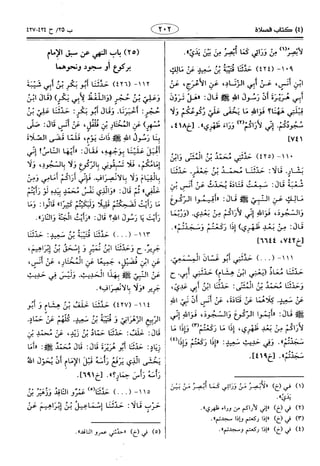 (٤) كتاب الصلاة
٢٠٢
ب ٢٥/ ح ٤٢٤-٤٢٧
لأبصر(١) من ورائي كما أبصر من بين يدي».
١٠٩-(٤٢٤) حدثنا قتيبة بن سعيد عن مالك
ابن أنس، عن أبي الزناد، عن الأعرج، عن
أبي هريرة أن رسول الله ﷺ قال: «هل ترون
قبلتي ههنا؟ فوالله ما يخفى علي ركوعكم ولا
سجودكم، إني لأراكم(٢) وراء ظهري». [خ٤١٨،
٧٤١]
١١٠-(٤٢٥) حدثنا محمد بن المثنى وابن
بشار. قالا: حدثنا محمد بن جعفر. حدثنا
شعبة قال: سمعت قتادة يحدث عن أنس بن
مالك عن النبي ﷺ قال: «أقيموا الركوع
والسجود، فوالله إني لأراكم من بعدي. (وربما
قال: من بعد ظهري) إذا ركعتم وسجدتم(٣)».
[خ٧٤٢، ٦٦٤٤]
١١١-(...) حدثني أبو غسان المسمعي.
حدثنا معاذ (يعني ابن هشام) حدثني أبي. ح
وحدثنا محمد بن المثنى: حدثنا ابن أبي عدي،
عن سعيد. كلاهما عن قتادة، عن أنس أن نبي الله
ﷺ قال: «أتموا الركوع والسجود، فوالله إني
لأراكم من بعد ظهري، إذا ما ركعتم(٤) وإذا ما
سجدتم». وفي حديث سعيد: «إذا ركعتم وإذا(٤)
سجدتم». [خ٤١٩].
(١) في (خ) «لأبصر من ورائي كما أبصر من بين
يدي».
(٢) في (خ) «إني لأراكم من وراء ظهري».
(٣) في (خ) «إذا ركعتم وإذا سجدتم».
(٤) في (خ) «ركعتم وسجدتم».
(٢٥) باب النهي عن سبق الإمام
بركوع أو سجود ونحوهما
١١٢-(٤٢٦) حدثنا أبو بكر بن أبي شيبة
وعلي بن حجر (واللفظ لأبي بكر) (قال ابن
حجر: أخبرنا. وقال أبو بكر: حدثنا علي بن
مسهر) عن المختار بن فلفل، عن أنس قال: صلى
بنا رسول الله ﷺ ذات يوم، فلما قضى الصلاة
أقبل علينا بوجهه، فقال: «أيها الناس! إني
إمامكم، فلا تسبقوني بالركوع ولا بالسجود، ولا
بالقيام ولا بالانصراف، فإني أراكم أمامي ومن
خلفي» ثم قال: «والذي نفس محمد بيده لو رأيتم
ما رأيت لضحكتم قليلا ولبكيتم كثيرا» قالوا: وما
رأيت يا رسول الله؟ قال: «رأيت الجنة والنار».
١١٣-(...) حدثنا قتيبة بن سعيد: حدثنا
جرير. ح وحدثنا ابن نمير و إسحق بن إبراهيم،
عن ابن فضيل، جميعا عن المختار، عن أنس،
عن النبي ﷺ بهذا الحديث. وليس في حديث
جرير «ولا بالانصراف».
١١٤-(٤٢٧) حدثنا خلف بن هشام و أبو
الربيع الزهراني و قتيبة بن سعيد. كلهم عن حماد.
قال خلف: حدثنا حماد بن زيد، عن محمد بن
زياد. حدثنا أبو هريرة قال: قال محمد ﷺ: «أما
يخشى الذي يرفع رأسه قبل الإمام أن يحول الله
رأسه رأس حمار؟». [خ٦٩١].
١١٥-(...) حدثنا(٥) عمرو الناقد وزهير بن
حرب قالا: حدثنا إسماعيل بن إبراهيم عن
(٥) في (خ) «حدثني عمرو الناقد».